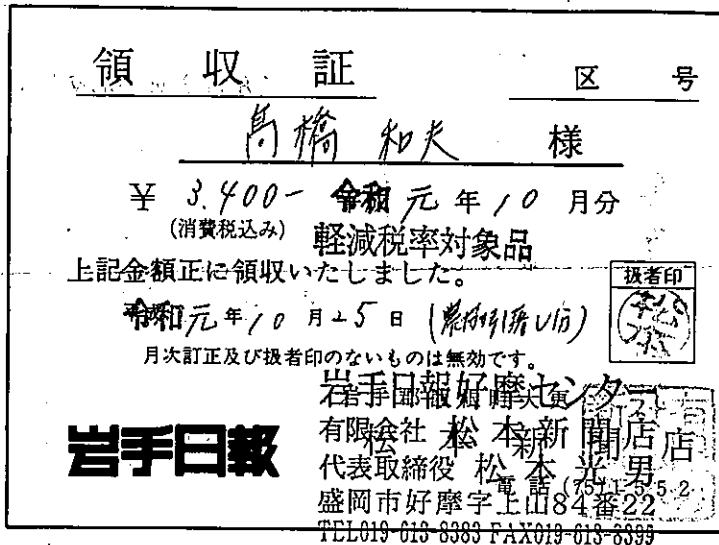 領収証 区 号
髙橋 和夫 様
¥ 3,400- 令和元年10月分
(消費税込み) 軽減税率対象品
上記金額正に領収いたしました。
扱者印
令和元年10月25日
月次訂正及び扱者印のないものは無効です。
岩手日報好摩センター
岩手日報
有限会社 松本新聞店
代表取締役 松本光男
盛岡市好摩字上山84番22
TEL019-613-8383 FAX019-613-8399